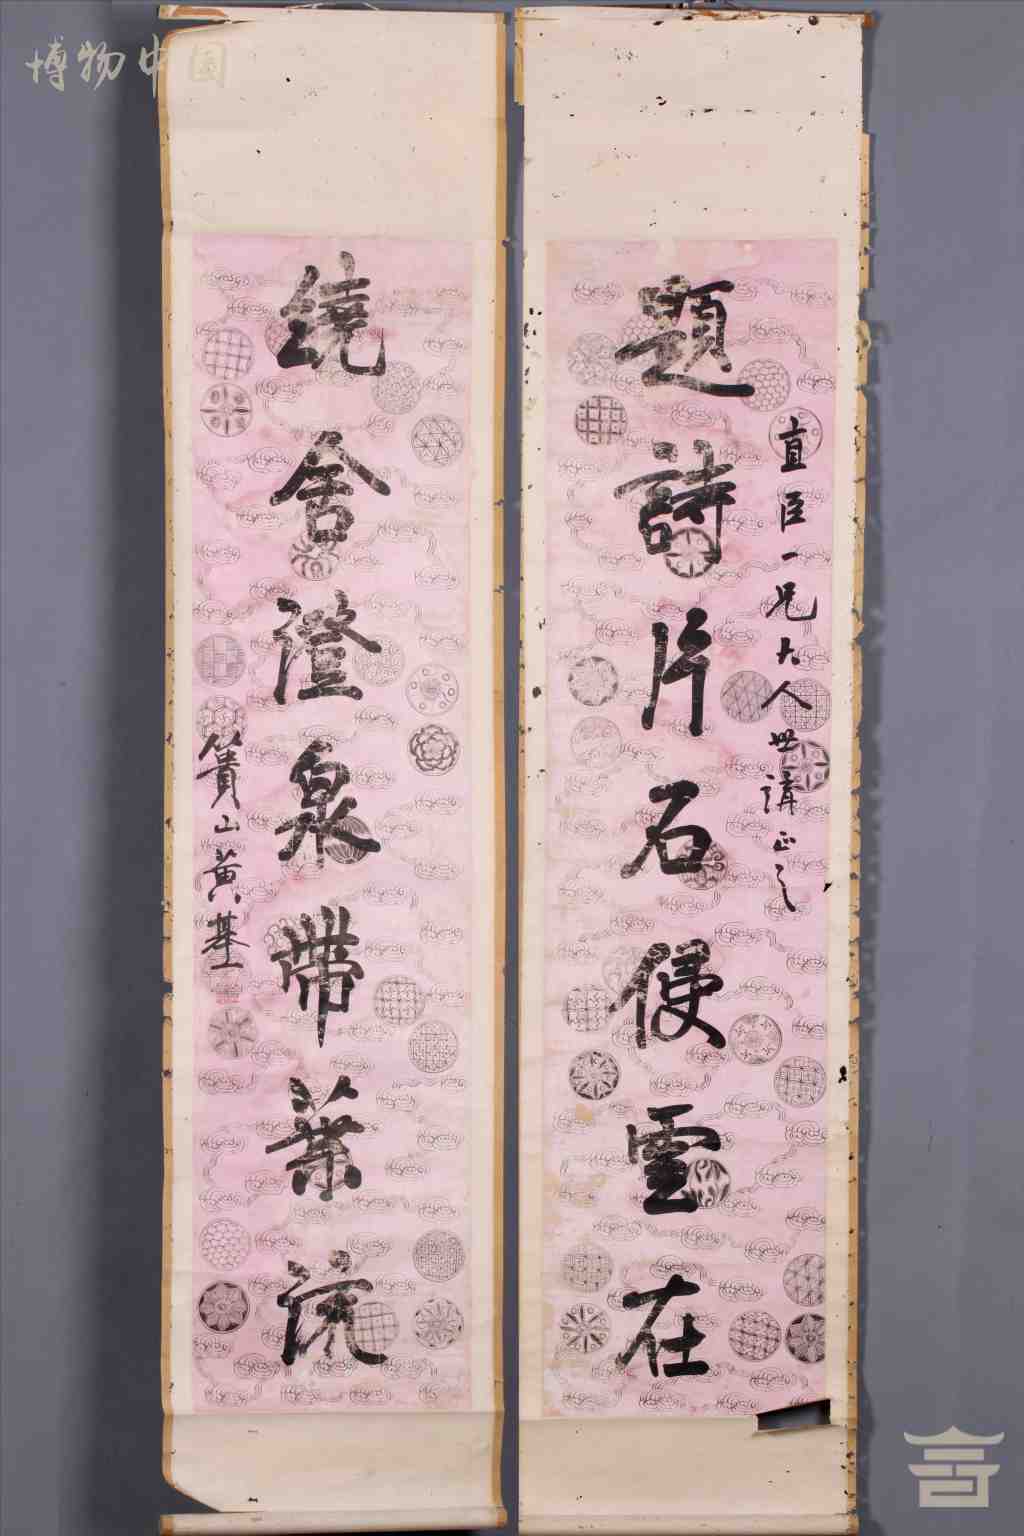 博物中国
題詩片石侵雲在
直臣一兄大人世講正之
繞舍澄泉帶葉流
簣山黄基